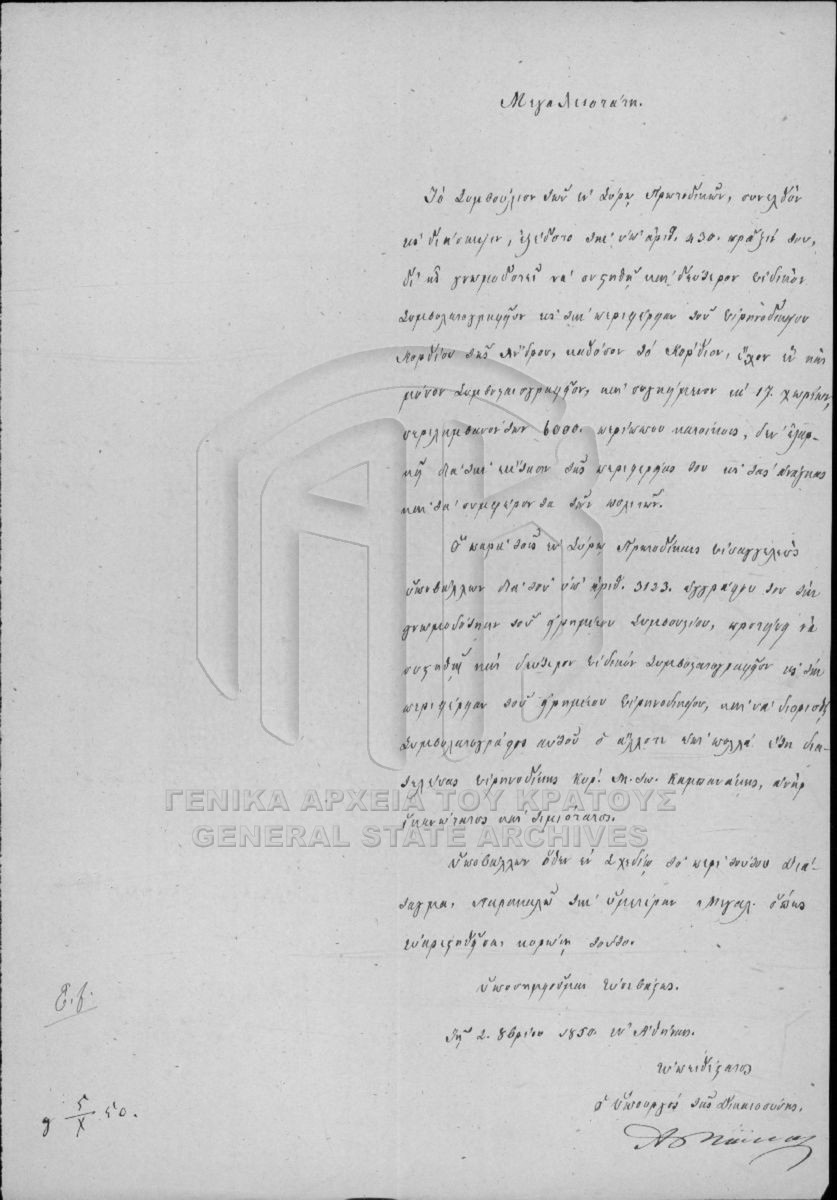 Μεγαλειοτάτη.
Τὸ Συμβούλιον τῶν ἐν Σύρῳ Πρωτοδικῶν, συνελθὸν
εἰς διάσκεψιν, ἐξέδοτο τὴν ὑπ' ἀριθ. 430. πρᾶξίν του,
δι' ἧς γνωμοδοτεῖ νὰ συστηθῇ καὶ δεύτερον εἰδικὸν
Συμβολαιογραφεῖον εἰς τὴν περιφέρειαν τοῦ Εἰρηνοδικείου
Κορθίου τῆς Ἄνδρου, καθόσον τὸ Κόρθιον, ἔχον ἓν καὶ
μόνον Συμβολαιογραφεῖον, καὶ συγκείμενον ἐκ 17. χωρίων,
περιλαμβανόντων 6000. περίπου κατοίκους, δὲν
διὰ τὴν ἔκτασιν τῆς περιφερείας του εἰς τὰς ἀνάγκας
καὶ τὰ συμφέροντα τῶν πολιτῶν.
Ὁ παρὰ τοῖς ἐν Σύρῳ Πρωτοδίκαις εἰσαγγελεὺς
ὑποβάλλων διὰ τοῦ ὑπ' ἀριθ. 3133. ἐγγράφου του τὴν
γνωμοδότησιν τοῦ εἰρημένου Συμβουλίου, προτείνει νὰ
συστηθῇ καὶ δεύτερον εἰδικὸν Συμβολαιογραφεῖον εἰς τὴν
περιφέρειαν τοῦ εἰρημένου Εἰρηνοδικείου, καὶ νὰ διορισθῇ
Συμβολαιογράφος αὐτοῦ ὁ ἄλλοτε ἐπὶ πολλὰ ἔτη δια-
τελέσας εἰρηνοδίκης Κύρ. Καμπανάκης, ἀνὴρ
ἱκανώτατος καὶ τιμιώτατος.
Ὑποβάλλων ὅθεν ἐν σχεδίῳ τὸ περὶ τούτου Διά-
ταγμα, παρακαλῶ τὴν ὑμετέραν Μεγαλ. ὅπως
εὐαρεστηθεῖσα, κυρώσῃ τοῦτο.
Ὑποσημειοῦμαι εὐσεβάστως.
Τῇ 2. 8βρίου 1850. ἐν Ἀθήναις.
Εὐπειθέστατος
ὁ Ὑπουργὸς τῆς Δικαιοσύνης.
5/X 50.
ΓΕΝΙΚΑ ΑΡΧΕΙΑ ΤΟΥ ΚΡΑΤΟΥΣ
GENERAL STATE ARCHIVES